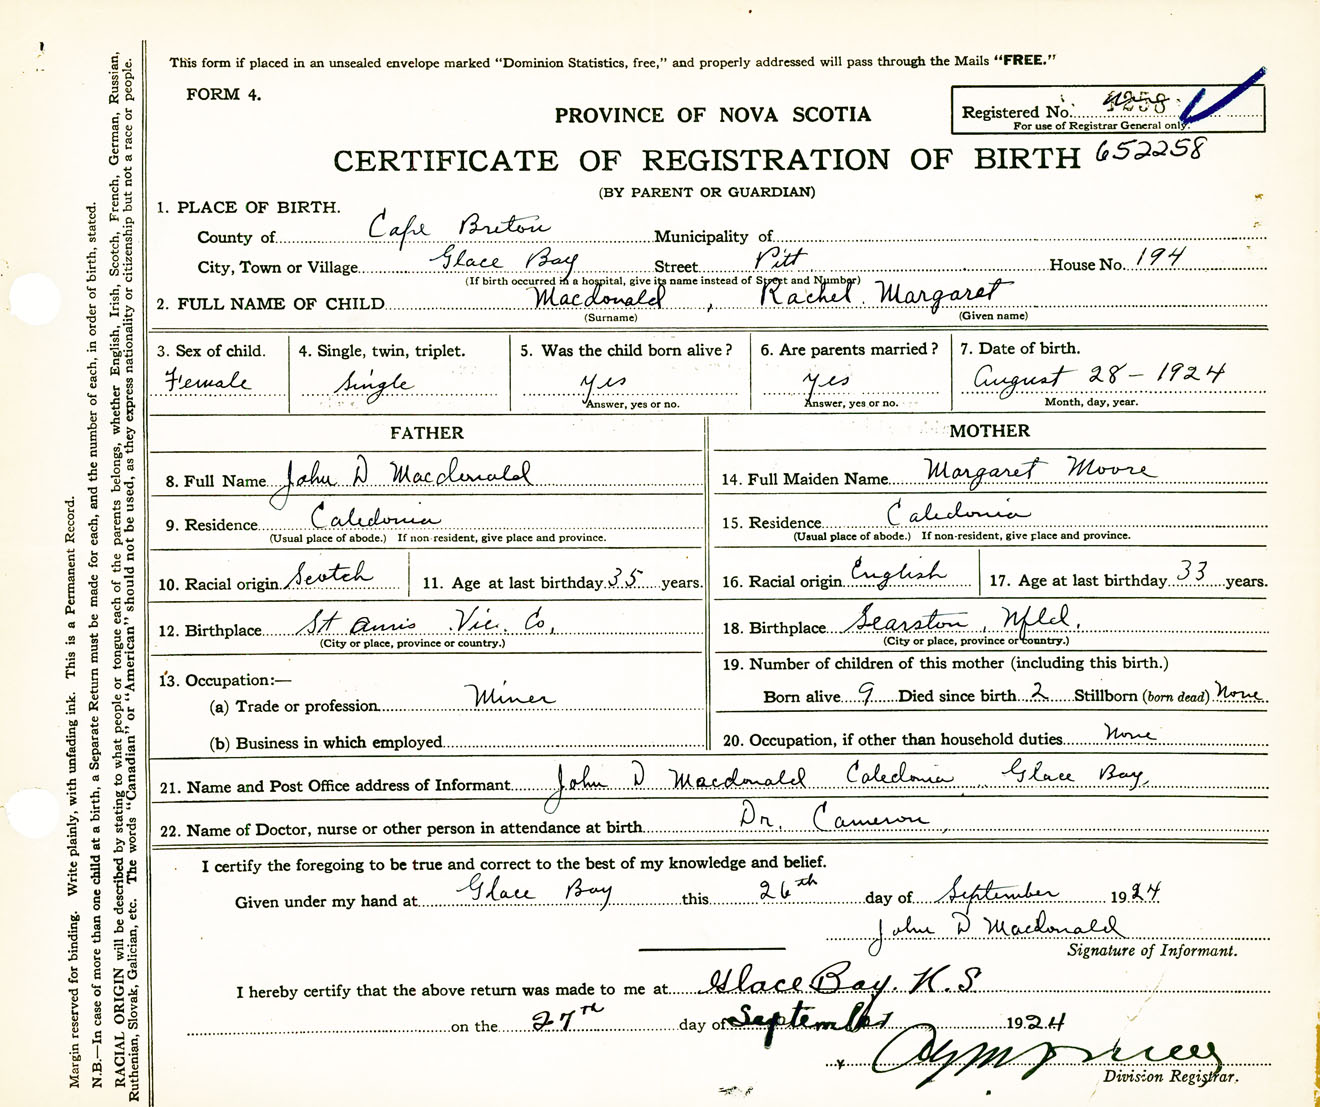 This form if placed in an unsealed envelope marked "Dominion Statistics, free," and properly addressed will pass through the Mails "FREE."
FORM 4.
PROVINCE OF NOVA SCOTIA
Registered No. 258
For use of Registrar General only.
CERTIFICATE OF REGISTRATION OF BIRTH 652258
(BY PARENT OR GUARDIAN)
1. PLACE OF BIRTH.
County of Cape Breton Municipality of
City, Town or Village Glace Bay Street Pitt House No. 194
(If birth occurred in a hospital, give its name instead of Street and Number)
2. FULL NAME OF CHILD Macdonald, Rachel Margaret
(Surname) (Given name)
3. Sex of child. 4. Single, twin, triplet. 5. Was the child born alive? 6. Are parents married? 7. Date of birth.
Female Single yes yes August 28 - 1924
Answer, yes or no. Answer, yes or no. Month, day, year.
FATHER
8. Full Name John D Macdonald
9. Residence Caledonia
(Usual place of abode.) If non-resident, give place and province.
10. Racial origin Scotch 11. Age at last birthday 35 years.
12. Birthplace St Anns Vic. Co,
(City or place, province or country.)
13. Occupation:—
(a) Trade or profession Miner
(b) Business in which employed
MOTHER
14. Full Maiden Name Margaret Moore
15. Residence Caledonia
(Usual place of abode.) If non-resident, give place and province.
16. Racial origin English 17. Age at last birthday 33 years.
18. Birthplace Searston, Nfld.
(City or place, province or country.)
19. Number of children of this mother (including this birth.)
Born alive 9 Died since birth 2 Stillborn (born dead) None
20. Occupation, if other than household duties None
21. Name and Post Office address of Informant John D Macdonald Caledonia, Glace Bay,
22. Name of Doctor, nurse or other person in attendance at birth Dr. Cameron,
I certify the foregoing to be true and correct to the best of my knowledge and belief.
Given under my hand at Glace Bay this 26th day of September 1924
John D Macdonald
Signature of Informant.
I hereby certify that the above return was made to me at Glace Bay. N.S
on the 27th day of September 1924
Division Registrar.
Margin reserved for binding. Write plainly, with unfading ink. This is a Permanent Record.
N.B.—In case of more than one child at a birth, a Separate Return must be made for each, and the number of each, in order of birth, stated.
RACIAL ORIGIN will be described by stating to what people or tongue each of the parents belongs, whether English, Irish, Scotch, French, German, Russian,
Ruthenian, Slovak, Galician, etc. The words "Canadian" or "American" should not be used, as they express nationality or citizenship but not a race or people.